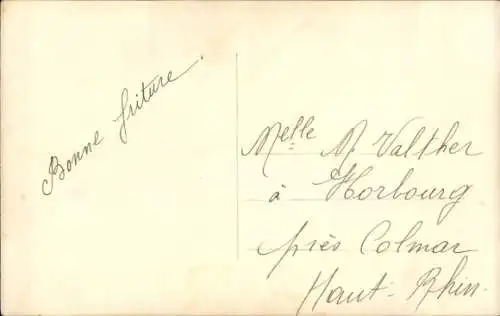 Bonne friture.
Melle M Valther
à Horbourg
près Colmar
Haut-Rhin.